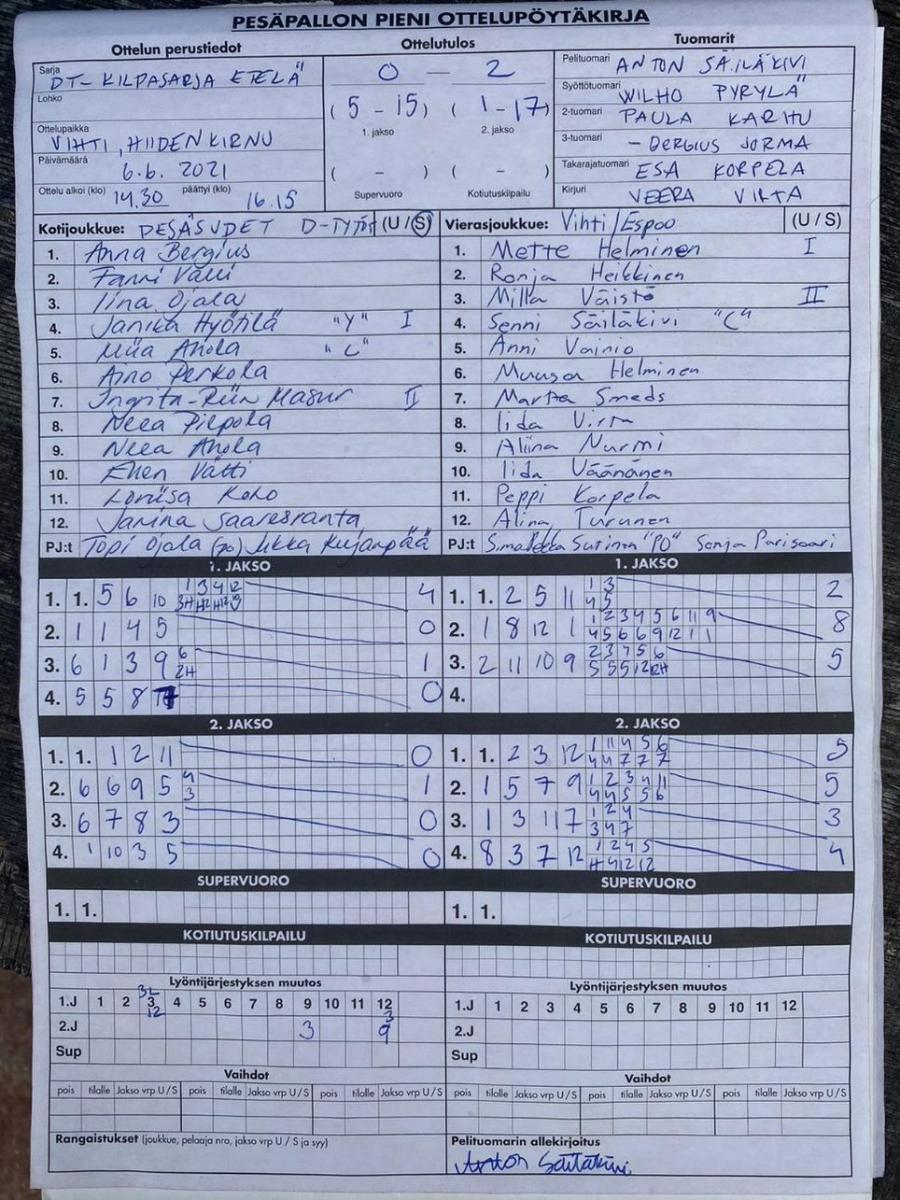 PESÄPALLON PIENI OTTELUPÖYTÄKIRJA
Ottelun perustiedot
Ottelutulos
Tuomarit
Sarja DT- KILPASARJA ETELÄ
Lohko
Ottelupaikka VIHTI, HIIDENKIRNU
Päivämäärä 6.6. 2021
Ottelu alkoi (klo) 14.30 päättyi (klo) 16.15
0 – 2
(5 - 15) (1 - 17)
1. jakso 2. jakso
( - ) ( - )
Supervuoro Kotiutuskilpailu
Pelituomari ANTON SÄILÄKIVI
Syöttötuomari WILHO PYRYLÄ
2-tuomari PAULA KARHU
3-tuomari - BERGIUS JORMA
Takarajatuomari ESA KORPELA
Kirjuri VEERA VIRTA
Kotijoukkue: PESÄSUDET D-TYTÖT (U / S)
1. Anna Bergius
2. Fanni Vätti
3. Iina Ojala
4. Janika Hyötilä "Y" I
5. Miia Ahola "C"
6. Aino Perkola
7. Ingrita-Riin Masur II
8. Neea Piepola
9. Neea Ahola
10. Ellen Vätti
11. Loviisa Koho
12. Janina Saaresranta
PJ:t Topi Ojala (po) Jukka Kujanpää
Vierasjoukkue: Vihti/Espoo (U / S)
1. Mette Helminen I
2. Ronja Heikkinen
3. Milla Väistö II
4. Senni Säiläkivi "C"
5. Anni Vainio
6. Muusa Helminen
7. Martta Smeds
8. Iida Virta
9. Aliina Nurmi
10. Iida Väänänen
11. Peppi Korpela
12. Alina Turunen
PJ:t Sutinen "PO" Sonja Parisaari
1. JAKSO
1. 1. 5 6 10 1 3 4 12 4
2. 1 1 4 5 0
3. 6 1 3 9 6 1
2H
4. 5 5 8 0
1. JAKSO
1. 1. 2 5 11 1 3 2
4 5
2. 1 8 12 1 1 2 3 4 5 6 11 9 8
4 5 6 6 9 12 1 1
3. 2 11 10 9 2 3 4 5 6 5
5 5 5 12 12H
4.
2. JAKSO
1. 1. 1 2 11 0
2. 6 6 9 5 4 1
3
3. 6 7 8 3 0
4. 1 10 3 5 0
2. JAKSO
1. 1. 2 3 12 1 11 4 5 6 5
4 4 7 7 7
2. 1 5 7 9 1 2 3 4 11 5
4 4 5 5 6
3. 1 3 11 7 1 2 4 3
3 4 7
4. 8 3 7 12 1 2 4 5 4
H 4 12 12
SUPERVUORO
1. 1.
SUPERVUORO
1. 1.
KOTIUTUSKILPAILU
KOTIUTUSKILPAILU
Lyöntijärjestyksen muutos
1.J 1 2 3 4 5 6 7 8 9 10 11 12
12 3
2.J 3 9
Sup
Lyöntijärjestyksen muutos
1.J 1 2 3 4 5 6 7 8 9 10 11 12
2.J
Sup
Vaihdot
pois tilalle Jakso vrp U / S pois tilalle Jakso vrp U / S pois tilalle Jakso vrp U / S
Vaihdot
pois tilalle Jakso vrp U / S pois tilalle Jakso vrp U / S pois tilalle Jakso vrp U / S
Rangaistukset (joukkue, pelaaja nro, jakso vrp U / S ja syy)
Pelituomarin allekirjoitus
Anton Säiläkivi